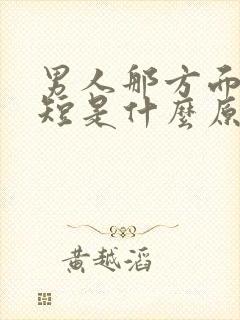 男人那方面
短是什麼原
黄越滔